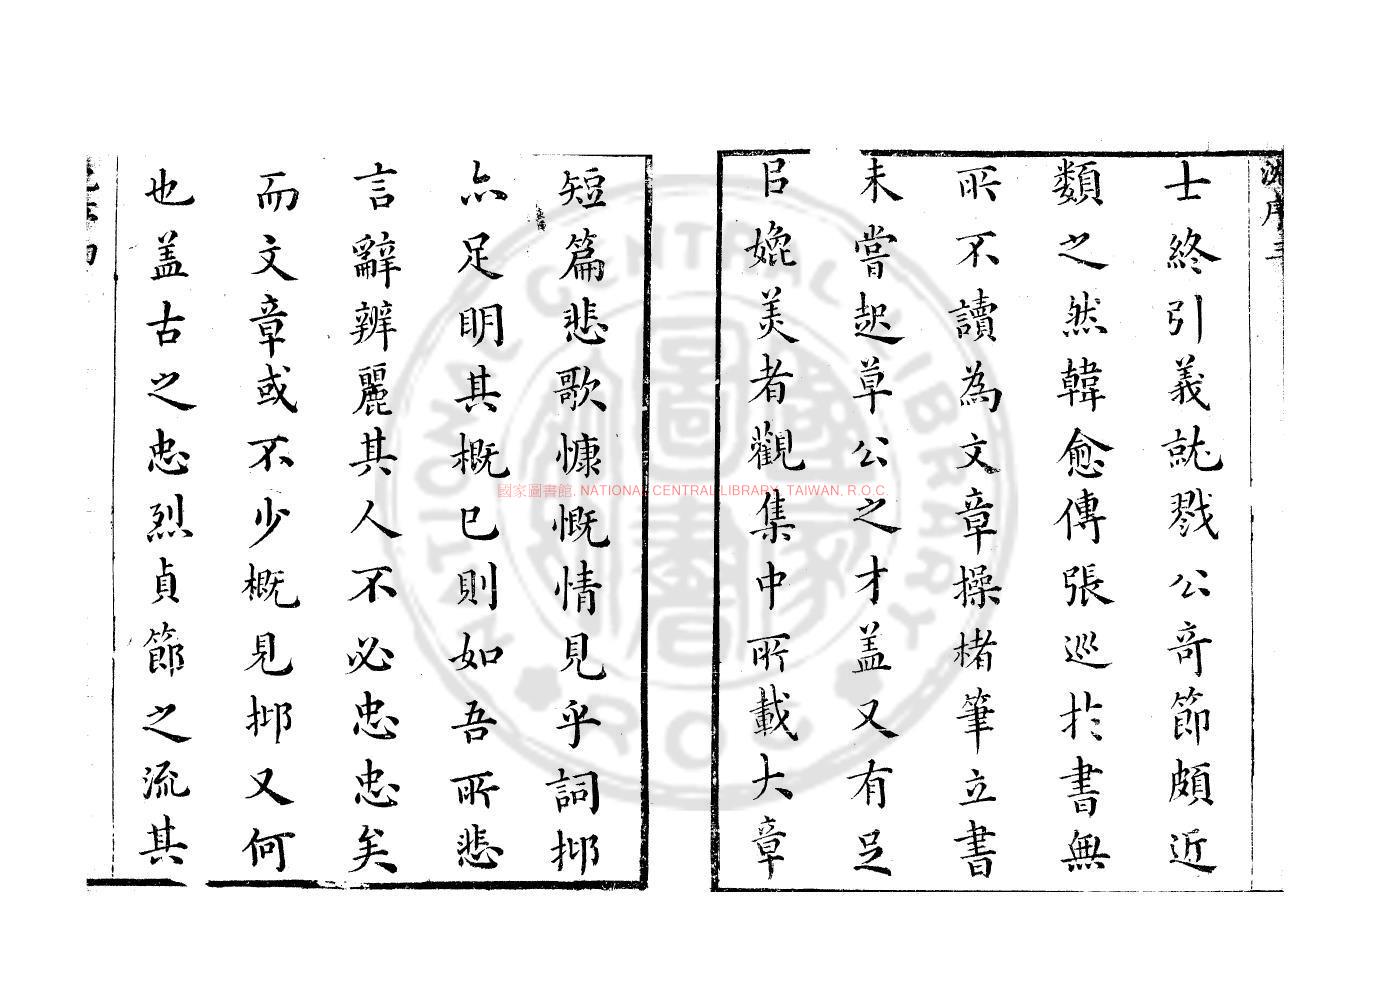 士終引義就戮公奇節頗近
類之然韓愈傳張巡扵書無
所不讀為文章操楮筆立書
未嘗起草公之才盖又有足
㠯媲美者觀集中所載大章
短篇悲歌慷慨情見乎詞抑
亦足明其概已則如吾所悲
言辭辨麗其人不必忠忠矣
而文章或不少概見抑又何
也盖古之忠烈貞節之流其
國家圖書館, NATIONAL CENTRAL LIBRARY, TAIWAN, R.O.C.
NATIONAL CENTRAL LIBRARY
R.O.C